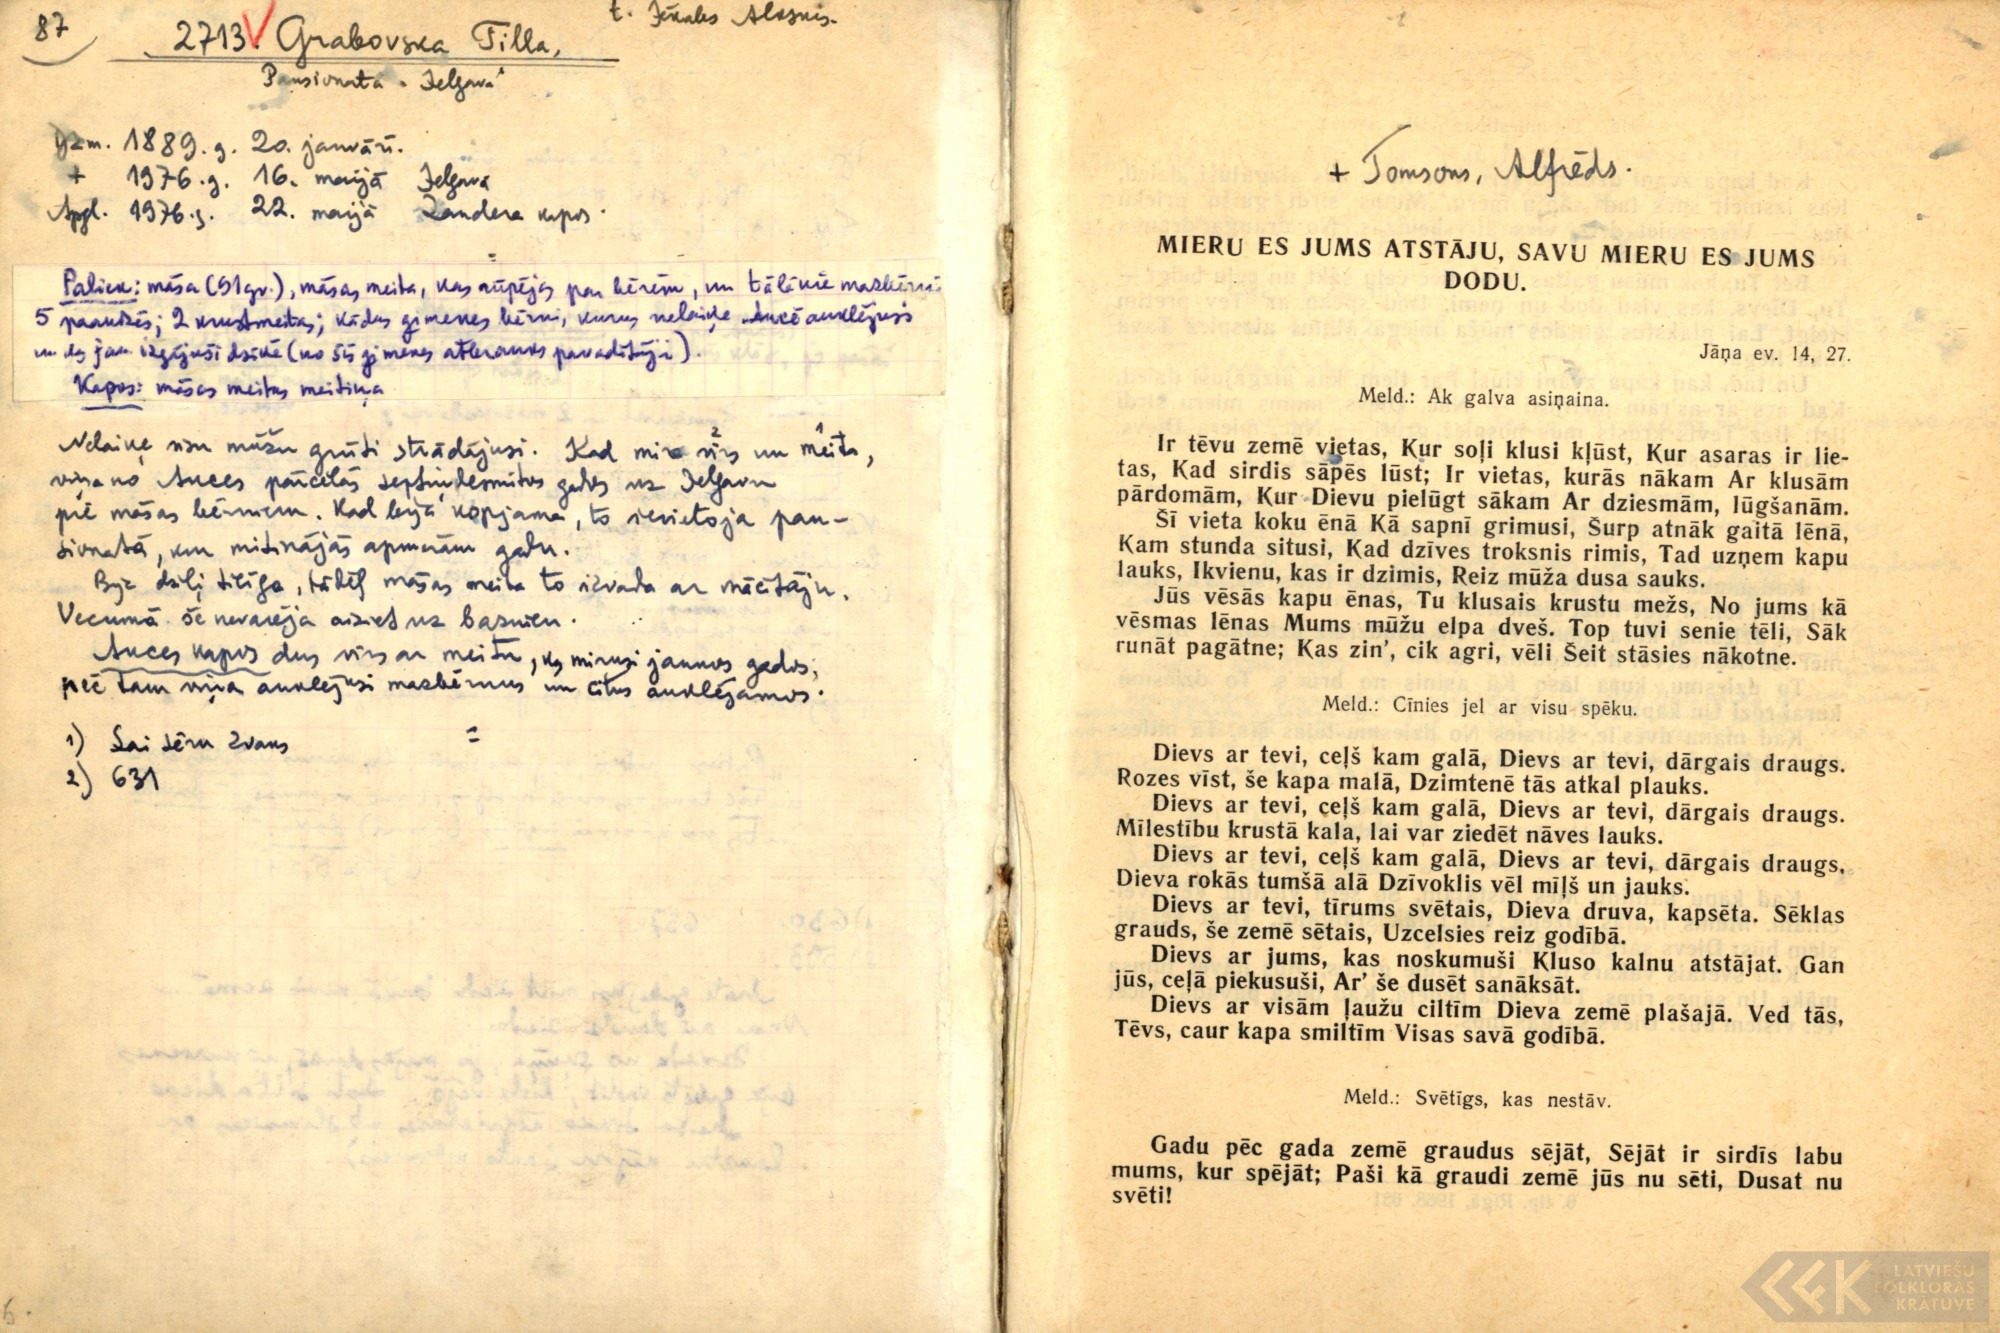 87
t. Jēkabs Alksnis.
2713. Grabovska Tilla,
Pansionāta - Jelgavā
Dzm. 1889. g. 20. janvārī.
+ 1976. g. 16. maijā Jelgavā
Apgl. 1976. g. 22. maijā Zandera kapos.
=
Paliek: māsa (91 gr.), māsas meita, kas rūpējās par bērēm, un tālākie mazbērni
5 paaudzēs; 2 krustmeitas; kādas ģimenes bērni, kurus nelaiķe Aucē auklējusi
un kas jau izgājuši dzīvē (no šīs ģimenes atbraukuši pavadītāji).
Kapos: māsas meitas meitiņa
Nelaiķe visu mūžu grūti strādājusi. Kad mira vīrs 2 un meita 1,
viņa no Auces pārcēlās septiņdesmitos gados uz Jelgavu
pie māsas bērniem. Kad bija kopjama, to ievietoja pan-
sionātā, kur mitinājās apmēram gadu.
Bija dziļi ticīga, tādēļ māsas meita to izvada ar mācītāju.
Vecumā še nevarēja aiziet uz baznīcu.
Auces kapos dus vīrs ar meitu, kas mirusi jaunos gados;
pēc tam viņa auklējusi mazbērnus un citus auklējamos.
1) Lai sēru zvans =
2) 631
+ Tomsons, Alfrēds.
MIERU ES JUMS ATSTĀJU, SAVU MIERU ES JUMS
DODU.
Jāņa ev. 14, 27.
Meld.: Ak galva asiņaina.
Ir tēvu zemē vietas, Kur soļi klusi kļūst, Kur asaras ir lie-
tas, Kad sirdis sāpēs lūst; Ir vietas, kurās nākam Ar klusām
pārdomām, Kur Dievu pielūgt sākam Ar dziesmām, lūgšanām.
Šī vieta koku ēnā Kā sapnī grimusi, Šurp atnāk gaitā lēnā,
Kam stunda situsi, Kad dzīves troksnis rimis, Tad uzņem kapu
lauks, Ikvienu, kas ir dzimis, Reiz mūža dusa sauks.
Jūs vēsās kapu ēnas, Tu klusais krustu mežs, No jums kā
vēsmas lēnas Mums mūžu elpa dveš. Top tuvi senie tēli, Sāk
runāt pagātne; Kas zin', cik agri, vēli Šeit stāsies nākotne.
Meld.: Cīnies jel ar visu spēku.
Dievs ar tevi, ceļš kam galā, Dievs ar tevi, dārgais draugs.
Rozes vīst, še kapa malā, Dzimtenē tās atkal plauks.
Dievs ar tevi, ceļš kam galā, Dievs ar tevi, dārgais draugs.
Mīlestību krustā kala, lai var ziedēt nāves lauks.
Dievs ar tevi, ceļš kam galā, Dievs ar tevi, dārgais draugs,
Dieva rokās tumšā alā Dzīvoklis vēl mīļš un jauks.
Dievs ar tevi, tīrums svētais, Dieva druva, kapsēta. Sēklas
grauds, še zemē sētais, Uzcelsies reiz godībā.
Dievs ar jums, kas noskumuši Kluso kalnu atstājat. Gan
jūs, ceļā piekusuši, Ar' še dusēt sanāksāt.
Dievs ar visām ļaužu ciltīm Dieva zemē plašajā. Ved tās,
Tēvs, caur kapa smiltīm Visas savā godībā.
Meld.: Svētīgs, kas nestāv.
Gadu pēc gada zemē graudus sējāt, Sējāt ir sirdīs labu
mums, kur spējāt; Paši kā graudi zemē jūs nu sēti, Dusat nu
svēti!
LATVIEŠU
FOLKLORAS
KRĀTUVE